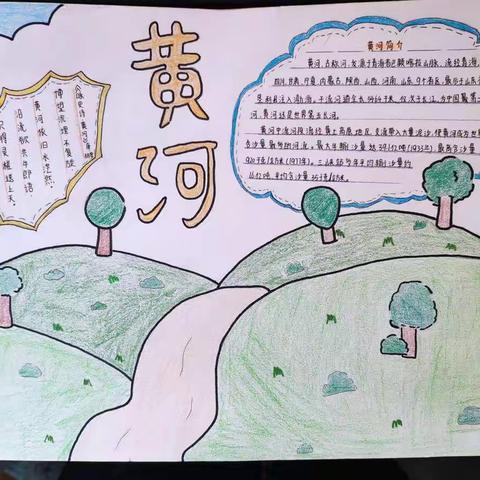 黄河
黄河简介
黄河，古称河，发源于青海省巴颜喀拉山脉，流经青海、
四川、甘肃、宁夏、内蒙古、陕西、山西、河南、山东9个省区，最后于山东
垦利县注入渤海。干流河道全长5464千米，仅次于长江，为中国第二
河，黄河还是世界第五长河。
黄河中游河段流经黄土高原地区，支流带入大量泥沙，使黄河成为世界
含沙量最多的河流。最大年输沙量达39.1亿吨(1933年)，最高含沙量
920千克/立方米(1977年)。三门峡站多年平均输沙量约
16亿吨，平均含沙量35千克/立方米。
《咏史诗·黄河》
博望沉埋不复旋
黄河依旧水茫然。
沿流欲共牛郎语
只得灵槎送上天。